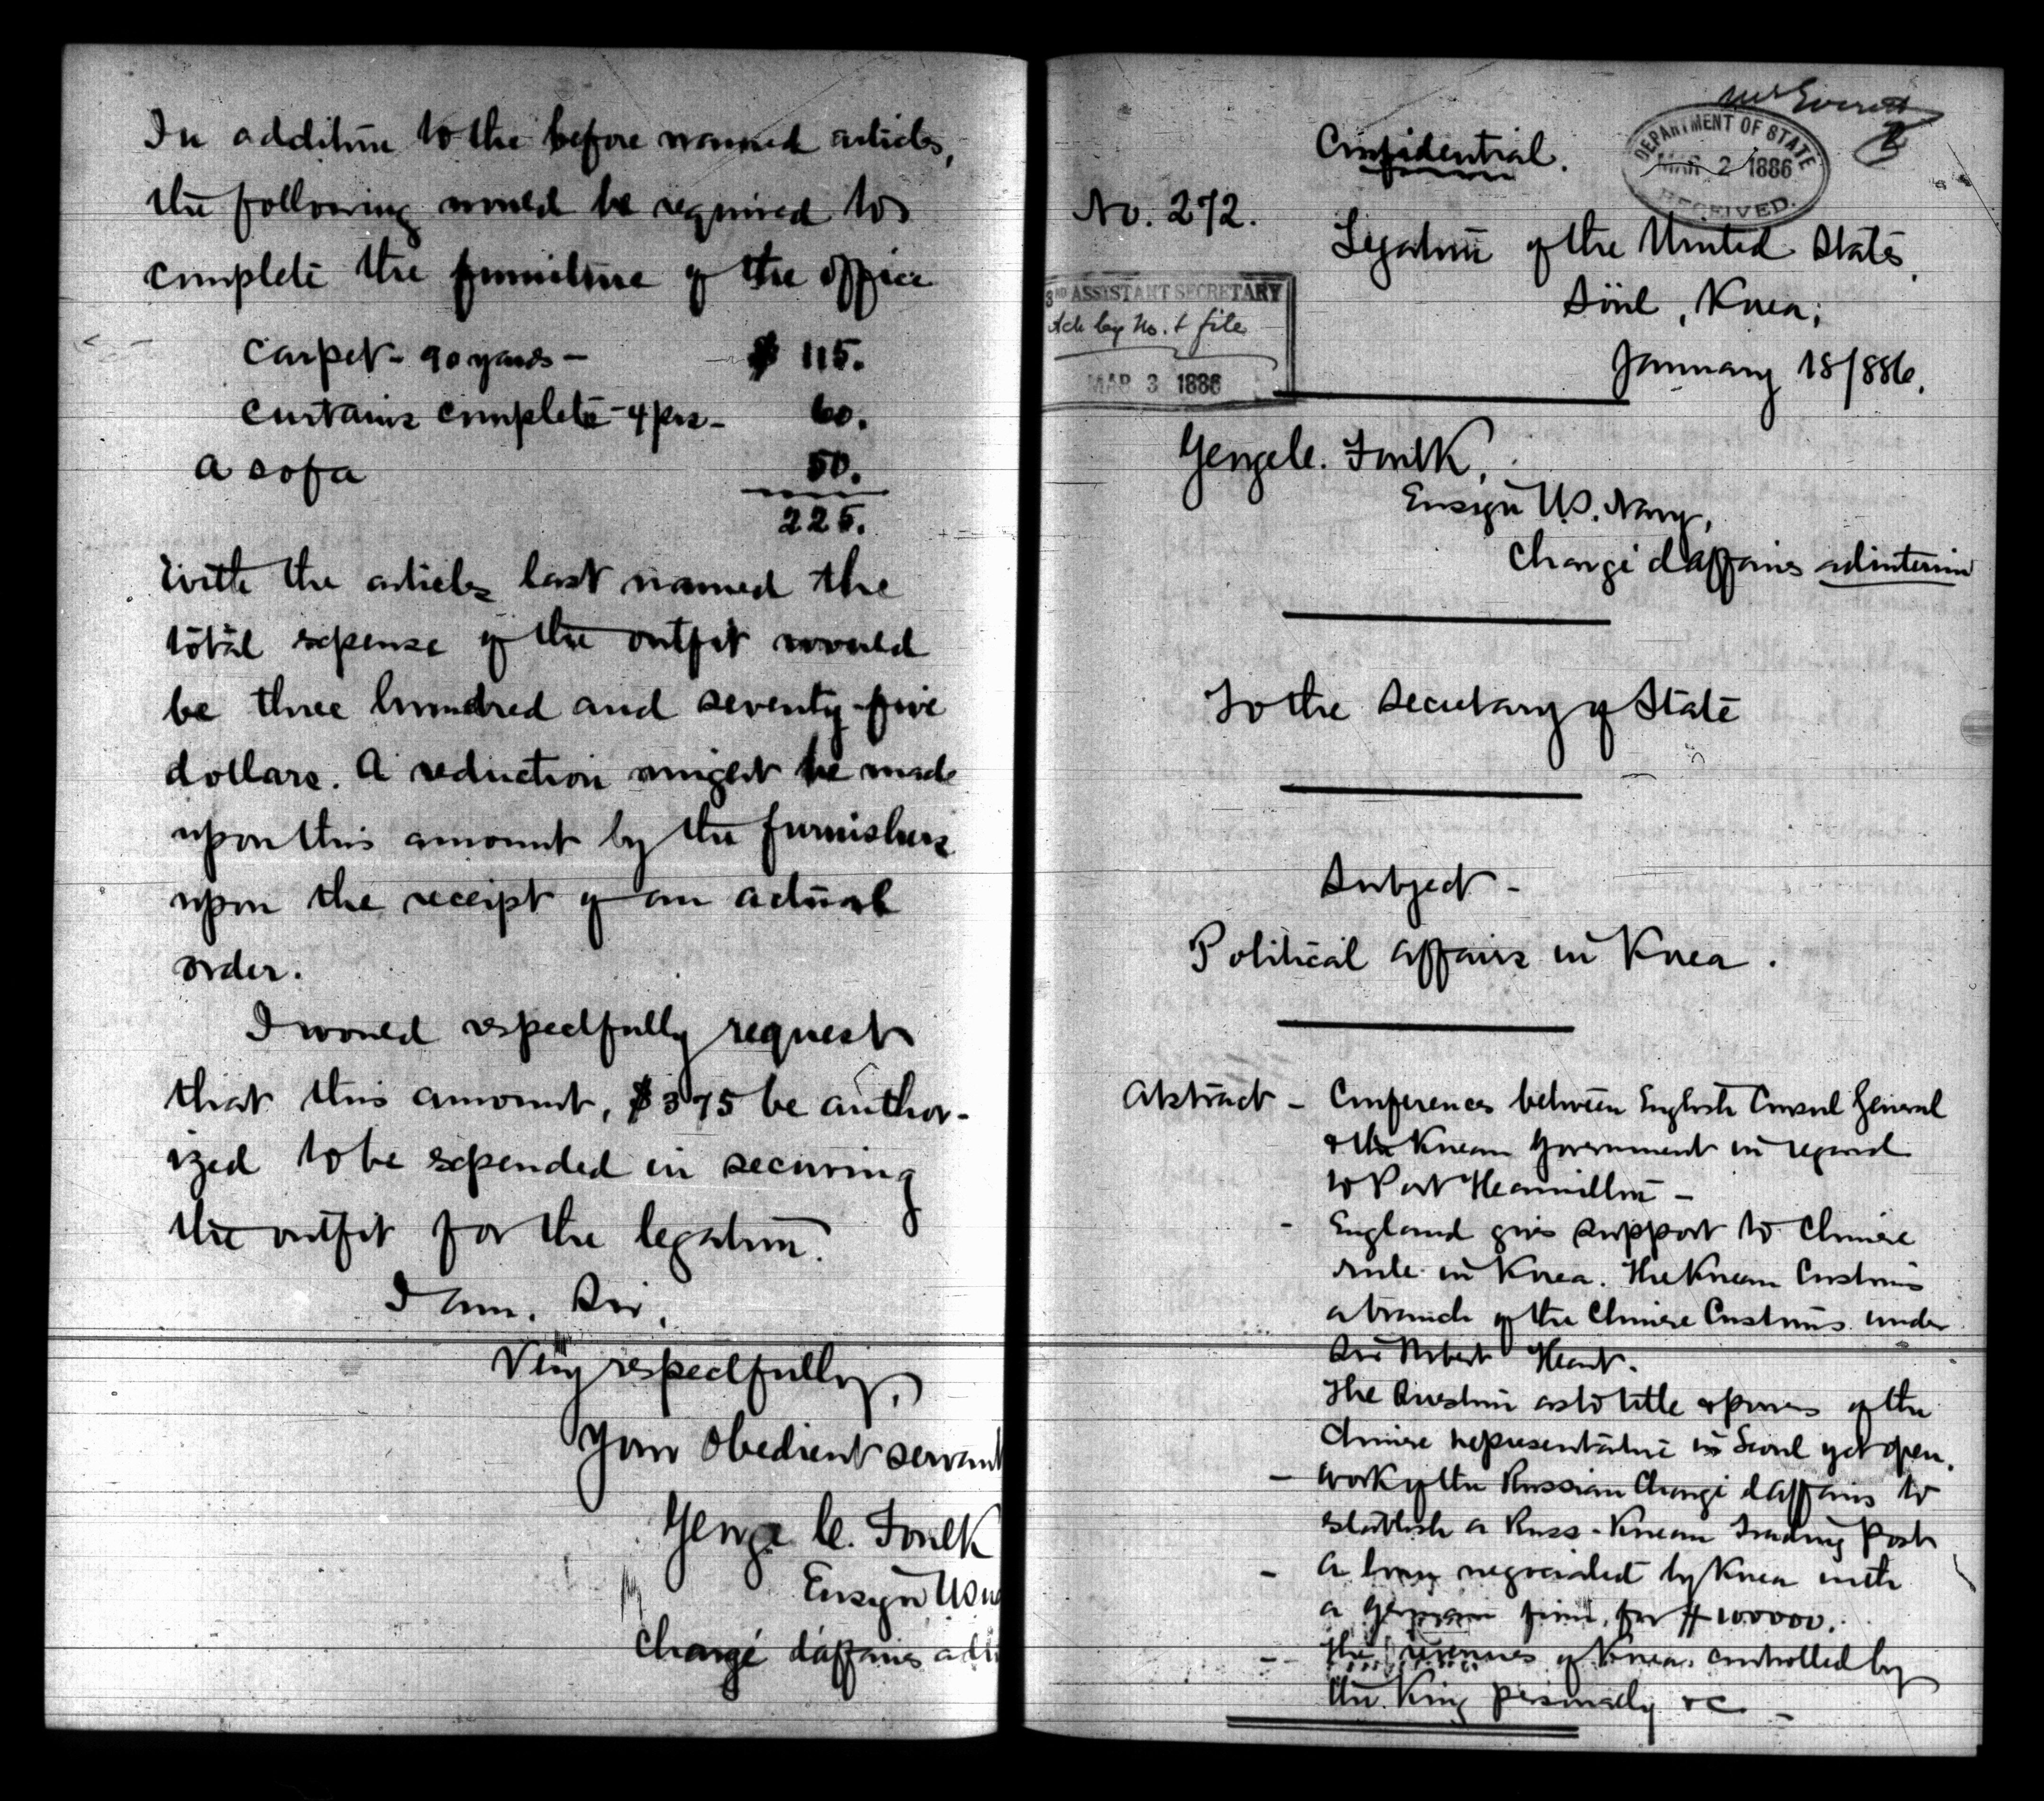 In addition to the before named articles,
the following would be required to
complete the furniture of the office
Carpet - 90 yards - $ 115.
Curtains complete - 4 prs - 60.
A sofa 50.
225.
With the articles last named the
total expense of the outfit would
be three hundred and seventy-five
dollars. A reduction might be made
upon this amount by the furnishers
upon the receipt of an actual
order.
I would respectfully request
that this amount, $375 be author-
ized to be expended in securing
the outfit for the legation.
I am, Sir,
Very respectfully,
Your obedient servant
George C. Foulk
Ensign US
Chargé d'affaires ad
Mr Everett
Confidential.
DEPARTMENT OF STATE
MAR 2 1886
RECEIVED.
No. 272.
Legation of the United States,
Söul, Korea;
3RD ASSISTANT SECRETARY
Ack by No. & file
MAR 3 1886
January 18/886.
George C. Foulk,
Ensign U.S. Navy,
Chargé d'affaires ad interim
To the Secretary of State
Subject -
Political affairs in Korea.
Abstract - Conferences between English Consul General
& the Korean Government in regard
to Port Hamilton -
- England gives support to Chinese
rule in Korea. The Korean Customs
a branch of the Chinese Customs under
Sir Robert Heart.
The Question as to title & powers of the
Chinese representative in Seoul yet open.
- Work of the Russian Chargé d'affaires to
establish a Russ-Korean Trading Post
- A loan negociated by Korea with
a German firm, for $100000.
- The revenues of Korea controlled by
the King personally &c -